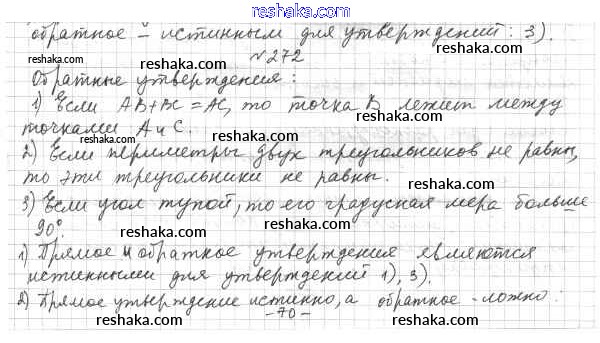 reshaka.com
обратное – истинным для утверждений: 3).
reshaka.com
№272
Обратные утверждения:
reshaka.com
1) Если AB+BC=AC, то точка B лежит между
точками A и C.
reshaka.com
2) Если периметры двух треугольников не равны,
то эти треугольники не равны.
reshaka.com
3) Если угол тупой, то его градусная мера больше
reshaka.com
90°.
1) Прямое и обратное утверждения являются
истинными для утверждений 1), 3).
reshaka.com
2) Прямое утверждение истинно, а обратное – ложно:
reshaka.com
-70-
reshaka.com